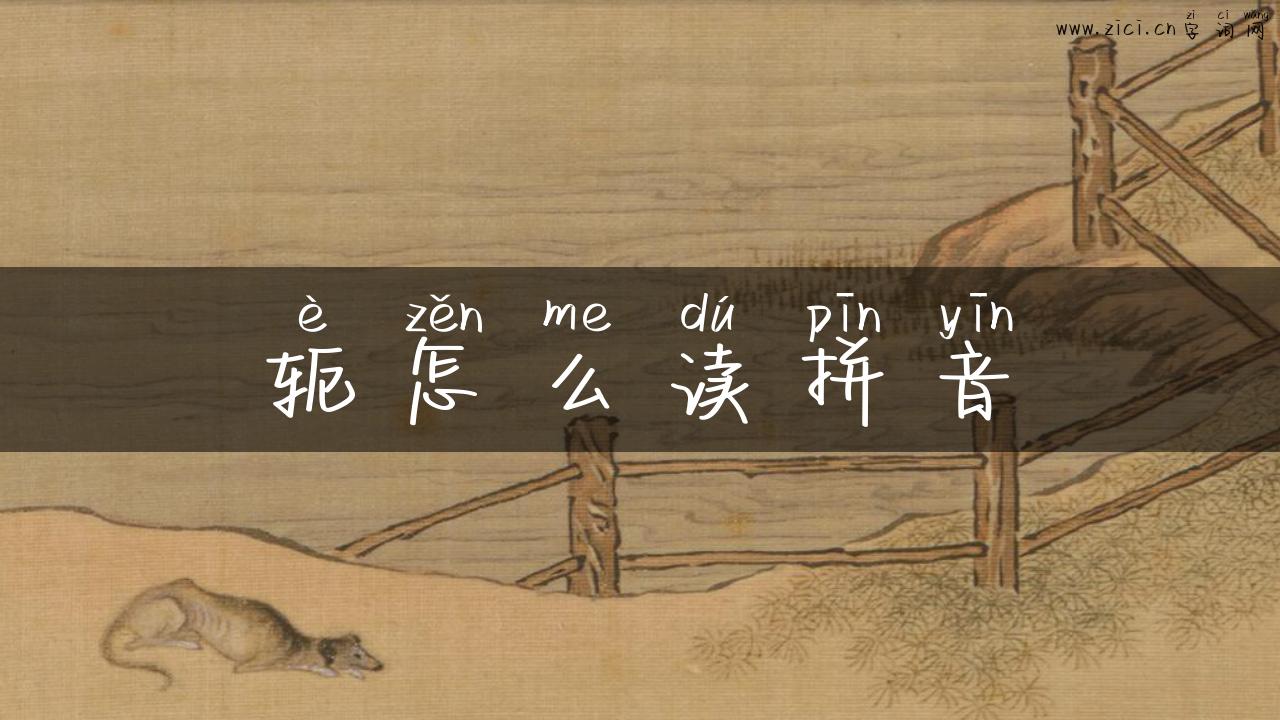 zi ci wang
www.zici.cn 字词网
è zěn me dú pīn yīn
轭怎么读拼音